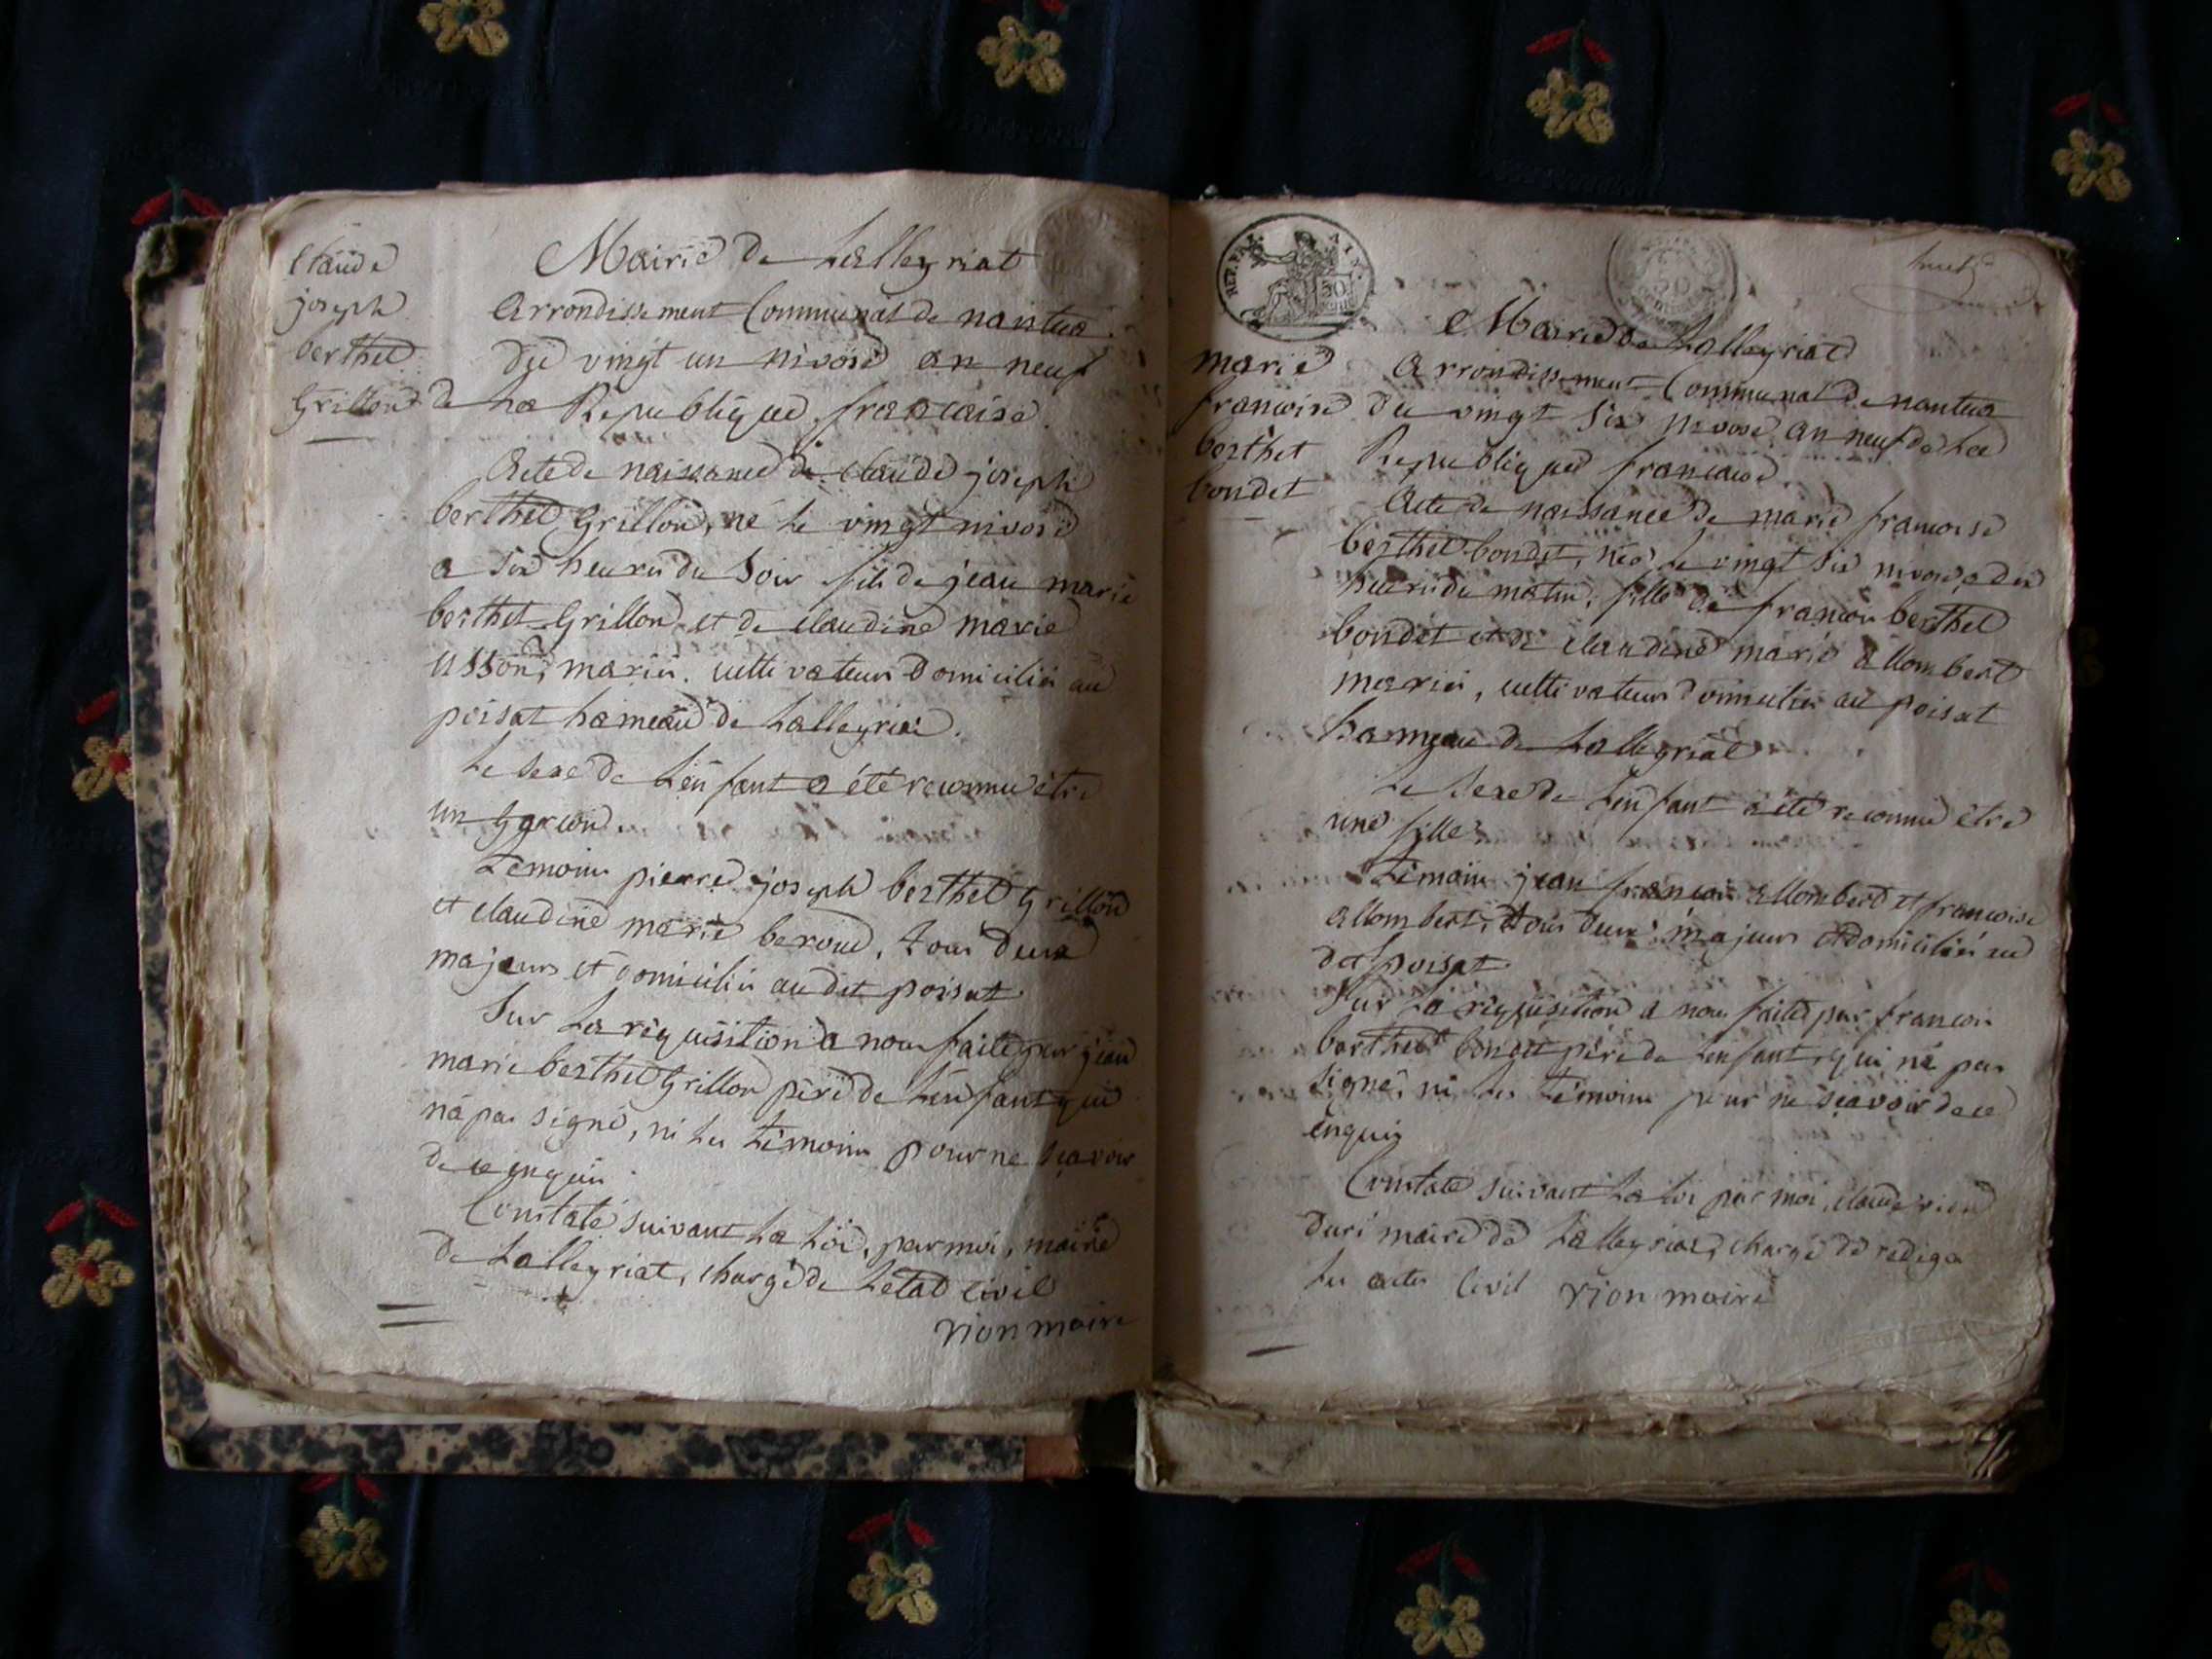 claude
joseph
berthet
Grillon
Mairie de Lalleyriat
Arrondissement Communal de nantua
du vingt un nivose an neuf
de La Republique francaise.
Acte de naissance de claude joseph
berthet Grillon, né le vingt nivose
a six heures du soir fils de jean marie
berthet Grillon et de claudine marie
usson, mariés. cultivateurs domiciliés au
poisat hameau de Lalleyriat.
Le sexe de Lenfant a été reconnu être
un Garcon.
Temoins pierre joseph berthet Grillon
et claudine marie beroud, tous deux
majeurs et domiciliés au dit poisat.
Sur La requisition a nous faite par jean
marie berthet Grillon père de Lenfant qui
na pas signé, ni Les témoins pour ne scavoir
de ce enquis
Constaté suivant La Loi, par moi, maire
de Lalleyriat, chargé de Letat civil
rion maire
REP. FRA. AIN.
50
Mairie de Lalleyriat
marie
francoise
berthet
bondet
Arrondissement Communal de nantua
du vingt six nivose an neuf de La
Republique francaise
Acte de naissance de marie francoise
berthet bondet, née le vingt six nivose a dix
heures du matin, fille de francois berthet
bondet et de claudine marie allombert
mariés, cultivateurs domiciliés au poisat
hameau de Lalleyriat
Le sexe de Lenfant a été reconnu être
une fille
Témoins jean francois allombert et francoise
allombert, tous deux majeurs et domiciliés au
dit poisat
Sur La requisition a nous faite par francois
berthet bondet père de Lenfant, qui na pas
signé, ni Les témoins pour ne scavoir de ce
enquis
Constaté suivant La Loi par moi, claude rion
duri maire de Lalleyriat, chargé de rediger
Les actes Civil rion maire